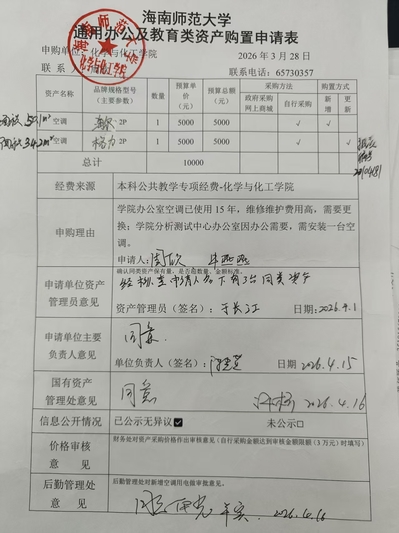 海南师范大学
通用办公及教育类资产购置申请表
申购单位：化学与化工学院 2026 年 3 月 28 日
联 系 人 联系电话：65730357
资产名称 品牌规格型号（主要参数） 数量 预算单价（元） 预算总额（元） 采购方法 购置方式
政府采购网上商城 自行采购 新增 更新
空调 2P 1 5000 5000 √ √
空调 格力 2P 1 5000 5000 √ √
总计 10000
经费来源 本科公共教学专项经费-化学与化工学院
申购理由 学院办公室空调已使用 15 年，维修维护费用高，需要更换；学院分析测试中心办公室因办公需要，需安装一台空调。
申请人：
申请单位资产管理员意见 确认同类资产保有量、是否超数量、金额标准。
资产管理员（签名）： 日期：2026.4.1
申请单位主要负责人意见 同意
单位负责人（签名）： 日期：2026.4.15
国有资产管理处意见 同意 2026.4.16
信息公开情况 已公示无异议☑ 未公示□
价格审核意 见 财务处对资产采购价格作出审核意见（自行采购金额达到审核金额限额（3 万元）时填写）
后勤管理处意 见 后勤管理处对新增空调用电做审批意见。
2026.4.16